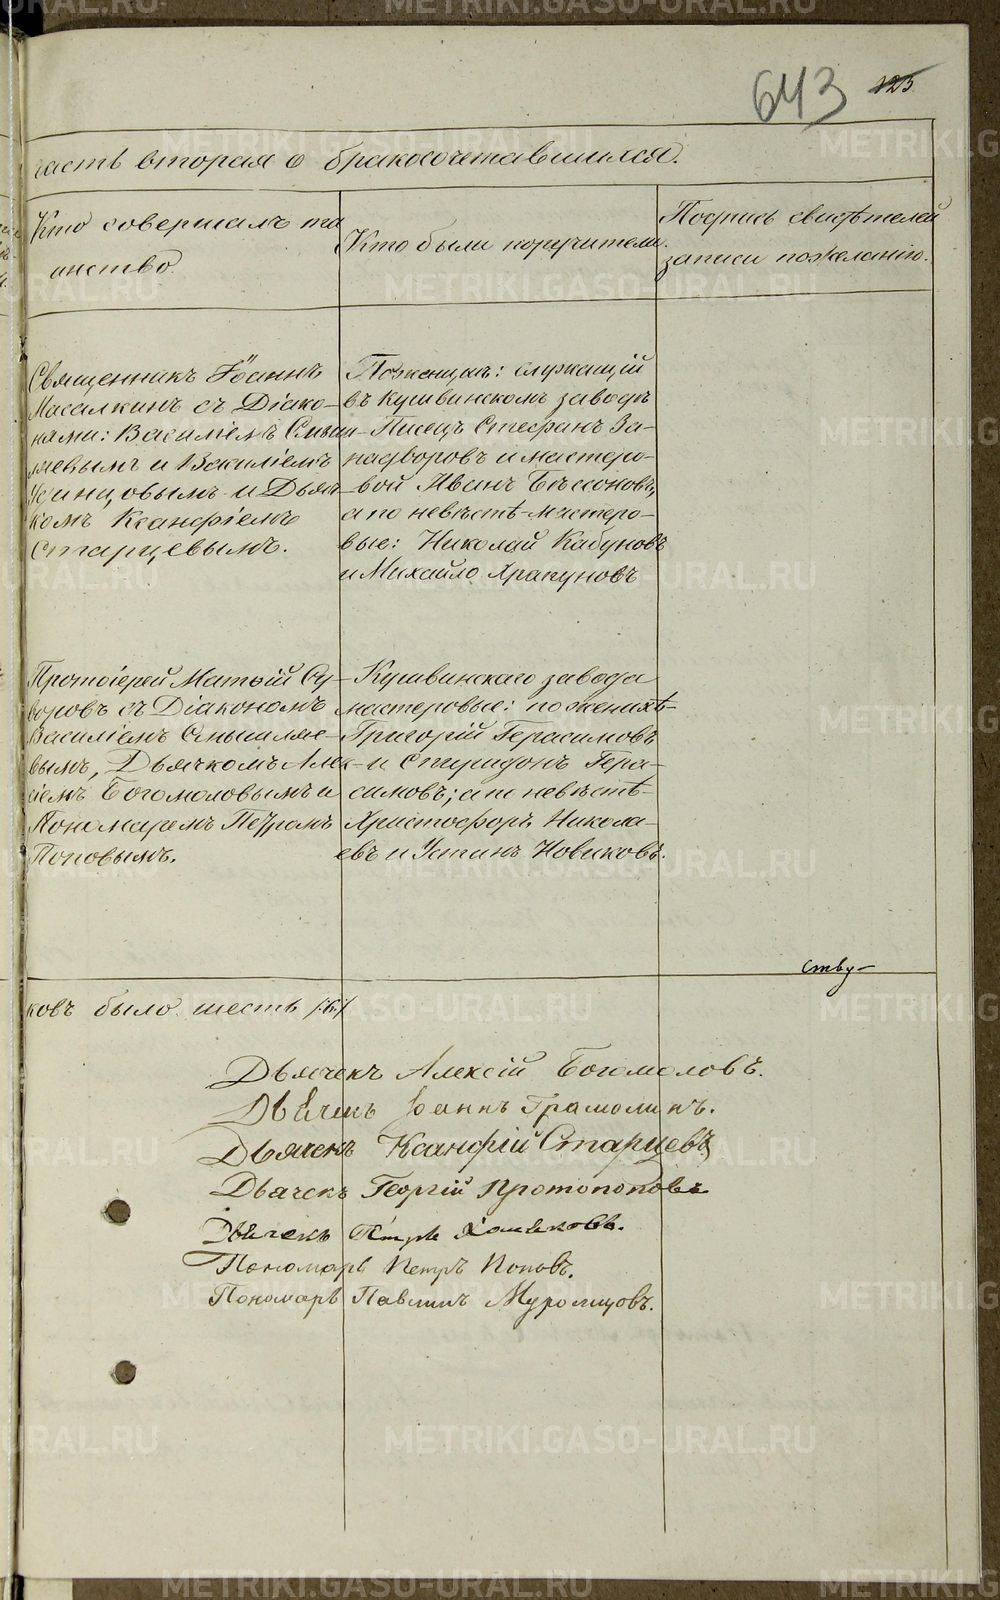 643 125
часть вторая о бракосочетавшихся.
Кто совершалъ та
инство.
Кто были поручители.
Подпись свидѣтелей
записи по желанію.
Священникъ Іоаннъ
Масалкинъ съ Діако-
нами: Василіемъ Смыш-
ляевымъ и Василіемъ
Удинцовымъ и Дьяч-
комъ Ксанфіемъ
Старцевымъ.
По женихѣ: служащій
въ Кушвинскомъ заводѣ
Писецъ Стефанъ За-
надворовъ и мастеро-
вой Иванъ Бѣссоновъ,
а по невѣстѣ мастеро-
вые: Николай Кабуновъ
и Михайло Храпуновъ
Протоіерей Матѳій Су-
воровъ съ Діакономъ
Василіемъ Смышляе-
вымъ, Дьячкомъ Алек-
сіемъ Богомоловымъ и
Пономаремъ Петромъ
Поповымъ.
Кушвинскаго завода
мастеровые: по женихѣ
Григорій Герасимовъ
и Спиридонъ Гера-
симовъ; а по невѣстѣ
Христофоръ Никола-
евъ и Устинъ Новиковъ.
ству-
ковъ было шесть /:6:/
Дьячекъ Алексій Богомоловъ.
Дьячекъ Іоаннъ Грамолинъ.
Дьячекъ Ксанфій Старцевъ
Дьячекъ Георгій Протопоповъ
Дьячекъ Петръ Хомяковъ.
Пономарь Петръ Поповъ.
Пономарь Павлинъ Муромцовъ.
METRIKI.GASO-URAL.RU